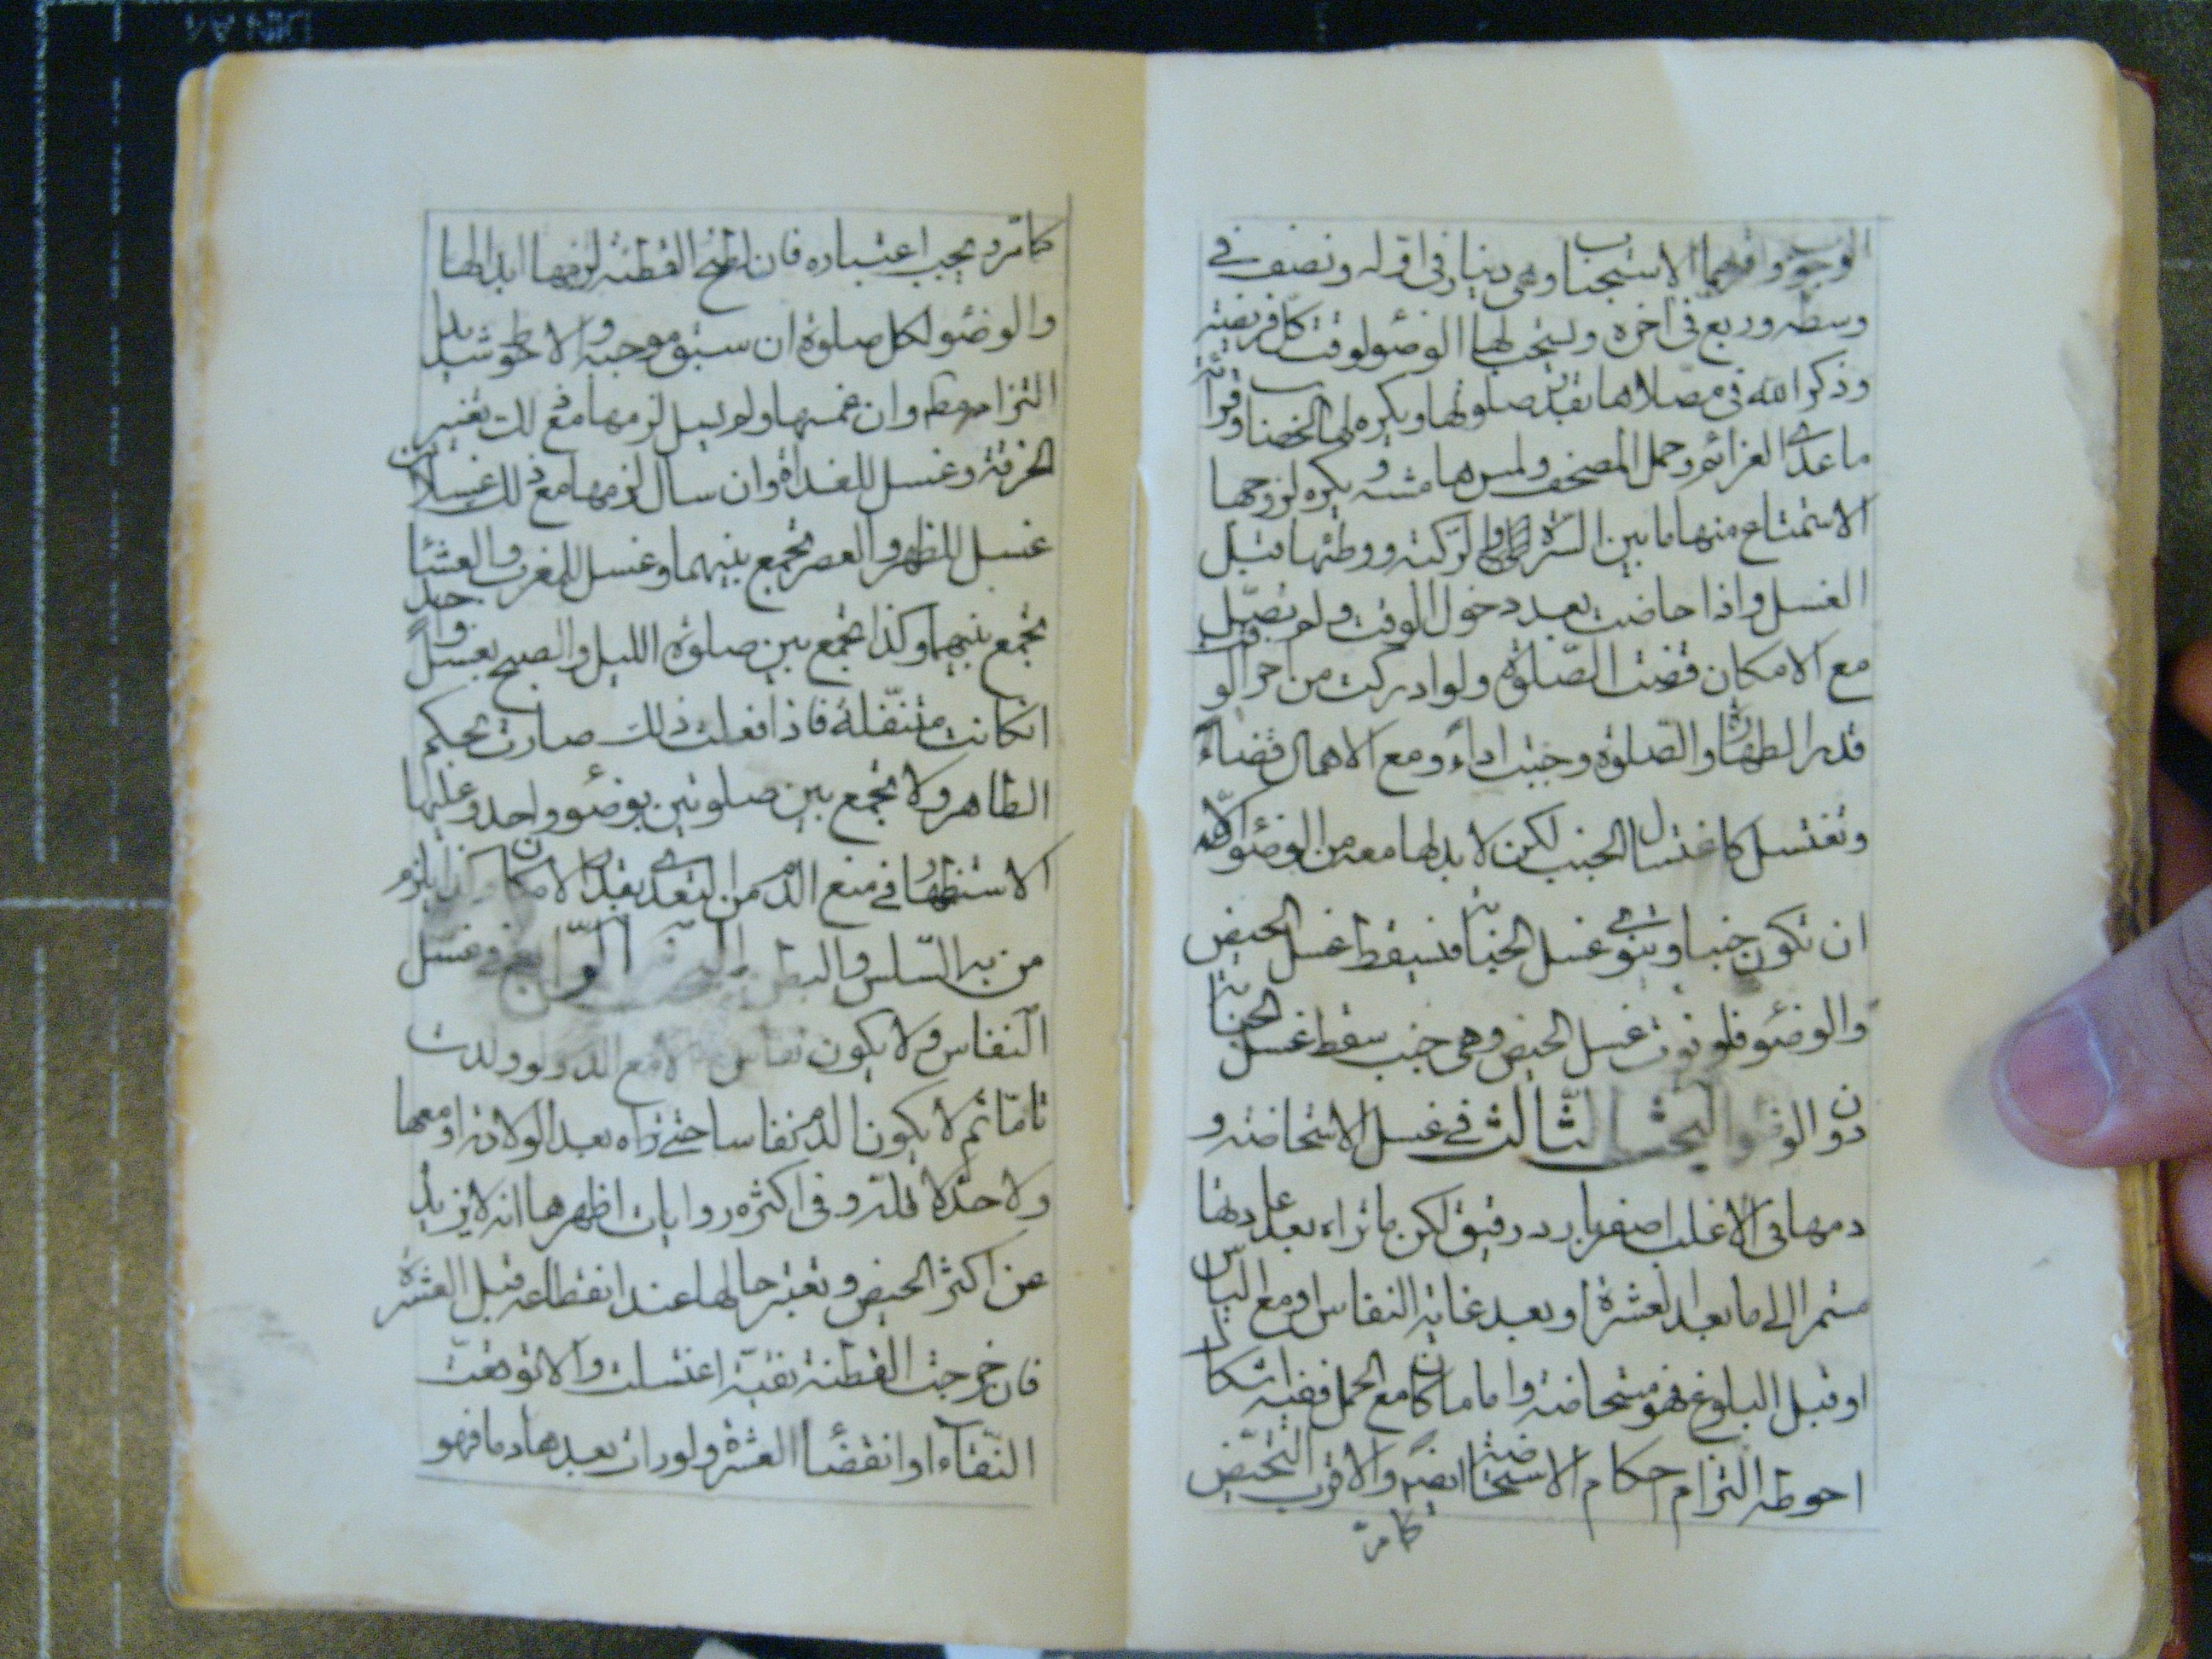 الوجوب واقربهما الاستحباب وهي دينار في اوله ونصف في
وسطه وربع في اخره ويستحب لها الوضوء لوقت كل فريضة
وذكر الله في مصلاها بقدر صلوتها ويكره لها الخضاب وقرائة
ما عدى العزائم وحمل المصحف ولمس هامشه ويكره لزوجها
الاستمتاع منها ما بين السرة والركبة ووطئها قبل
الغسل واذا حاضت بعد دخول الوقت ولم تصل
مع الامكان قضت الصلوة ولو ادركت من اخر الوقت
قدر الطهارة والصلوة وجبت اداء ومع الاهمال قضاء
وتغتسل كاغتسال الجنب لكن لا بد لها معه من الوضوء الا
ان تكون جنبا وتنوى غسل الجنابة فيسقط غسل الحيض
والوضوء فلو نوت غسل الحيض وهي جنب سقط غسل الجنابة
دون الوضوء البحث الثالث في غسل الاستحاضة و
دمها في الاغلب اصفر بارد رقيق لكن ما تراه بعد عادتها
مستمرا الى ما بعد العشرة او بعد غاية النفاس او مع الياس
او قبل البلوغ فهو استحاضة واما ما كان مع الحمل ففيه اشكال
احوطه التزام احكام الاستحاضة ايضا والاقرب التحيض
كما مر
كما مر ويجب اعتباره فان لطخ القطنة لزمها ابدالها
والوضوء لكل صلوة ان سبق موجبه والاحوط شديدا
التزامه مطم وان غمسها ولم يسل لزمها مع ذلك تغيير
الخرقة وغسل للغداة وان سال لزمها مع ذلك غسلان
غسل للظهر والعصر تجمع بينهما وغسل للمغرب والعشا
تجمع بينهما وكذا تجمع بين صلوة الليل والصبح بغسل واحد
انكانت متنفلة فاذا فعلت ذلك صارت بحكم
الطاهر ولا تجمع بين صلوتين بوضوء واحد وعليها
الاستظهار في منع الدم من التعدى بقدر الامكان وكذا يلزم
من به السلس والبطن البحث الرابع في غسل
النفاس ولا يكون نفاس الا مع الدم ولو ولدت
تاما ثم لا يكون الدم نفاسا حتى تراه بعد الولادة او معها
ولا حد لاقله وفي اكثره روايات اظهرها انه لا يزيد
عن اكثر الحيض وتعتبر حالها عند انقطاعه قبل العشرة
فان خرجت القطنة نقية اغتسلت والا توقعت
النقاء او انقضاء العشرة ولو رات بعدها دما فهو